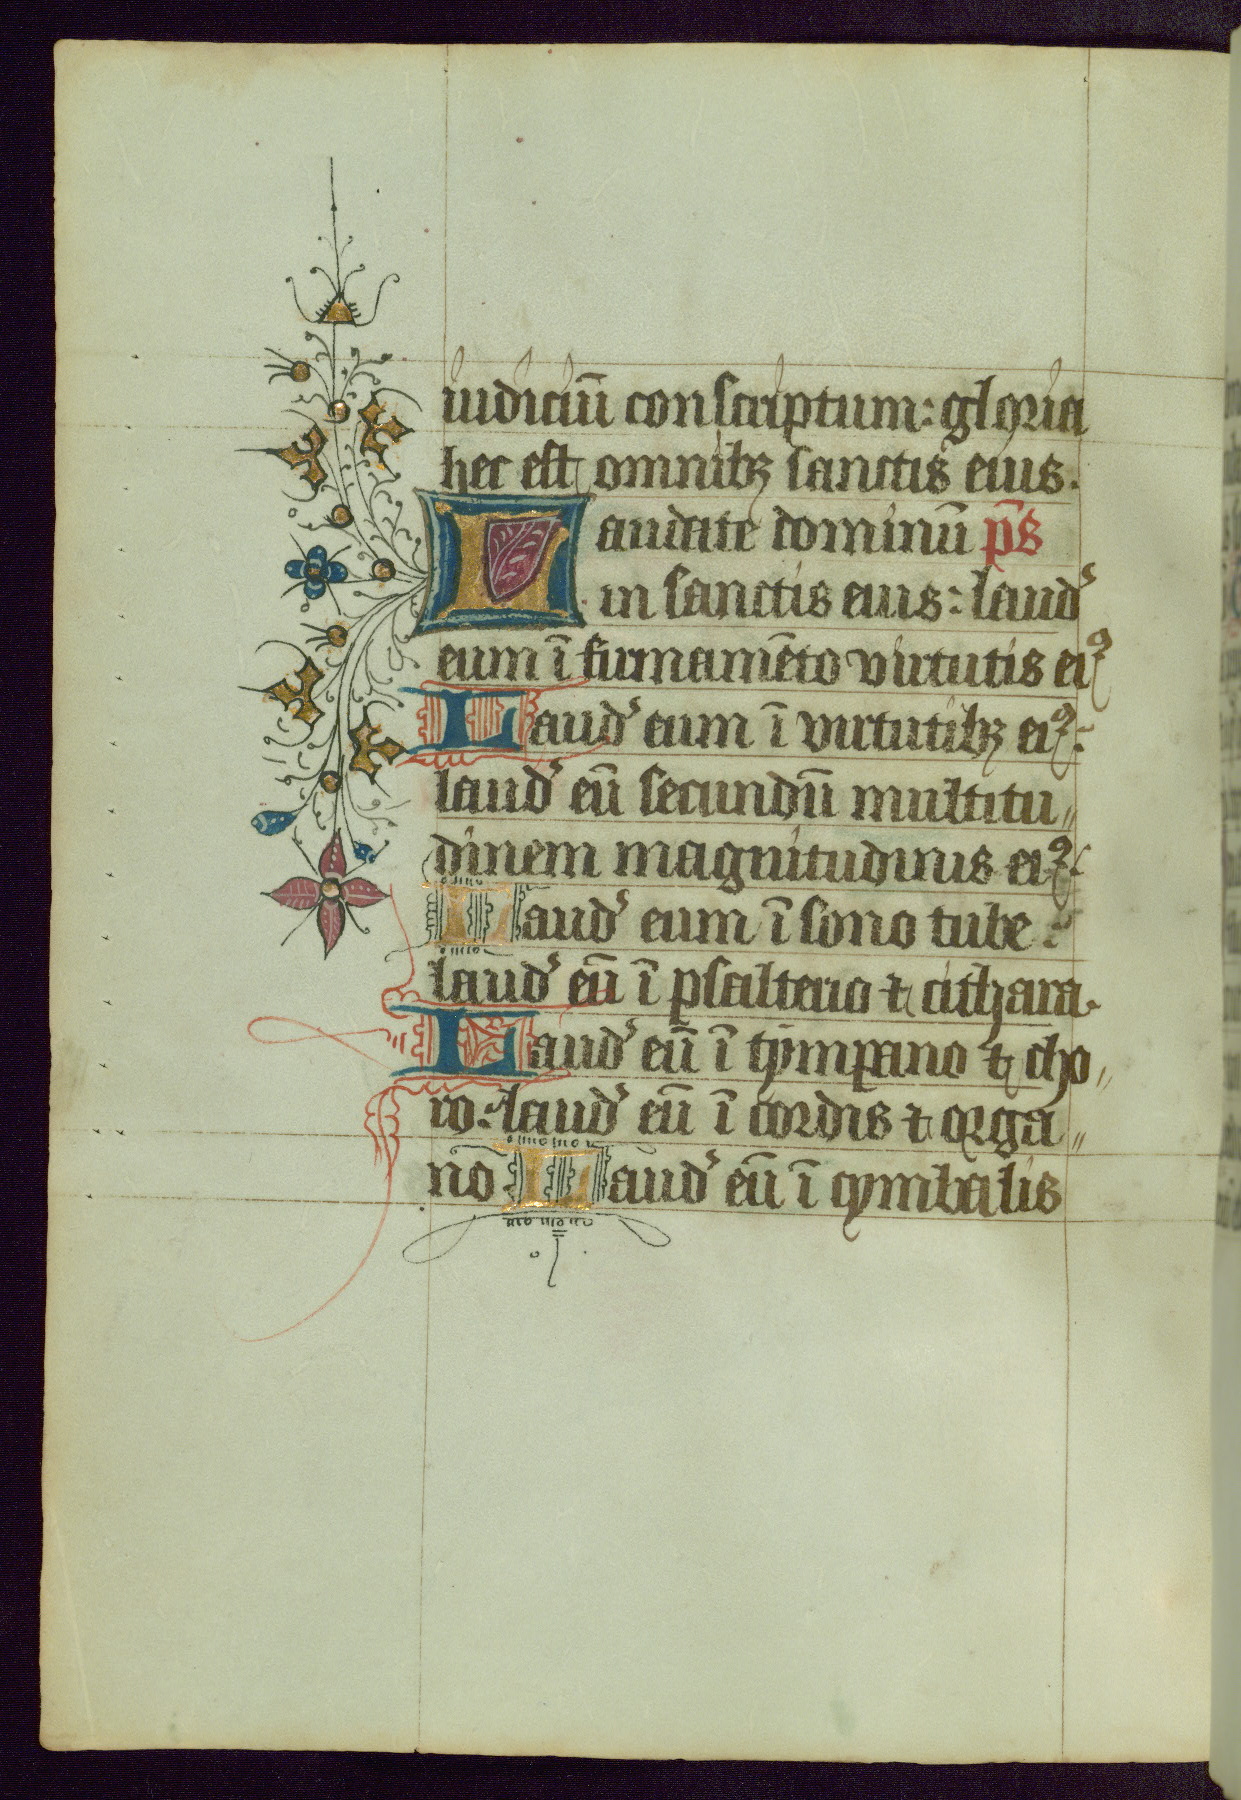 iudiciū conscriptum: gloria
hec est omnibꝫ sanctis eius.
Laudate dominū ps̄
in sanctis eius: laud᷒
eum ī firmamēto virtutis eiꝰ
Laud᷒ eum ī virtutibꝫ eiꝰ:
laud᷒ eū secundū multitu〃
dinem magnitudinis eiꝰ:
Laud᷒ eum ī sono tube:
laud᷒ eū ī psalterio ⁊ cithara.
Laud᷒ eū ī tympano ⁊ cho〃
ro: laud᷒ eū ī cordis ⁊ orga〃
nō. Laud᷒ eū ī cymbalis